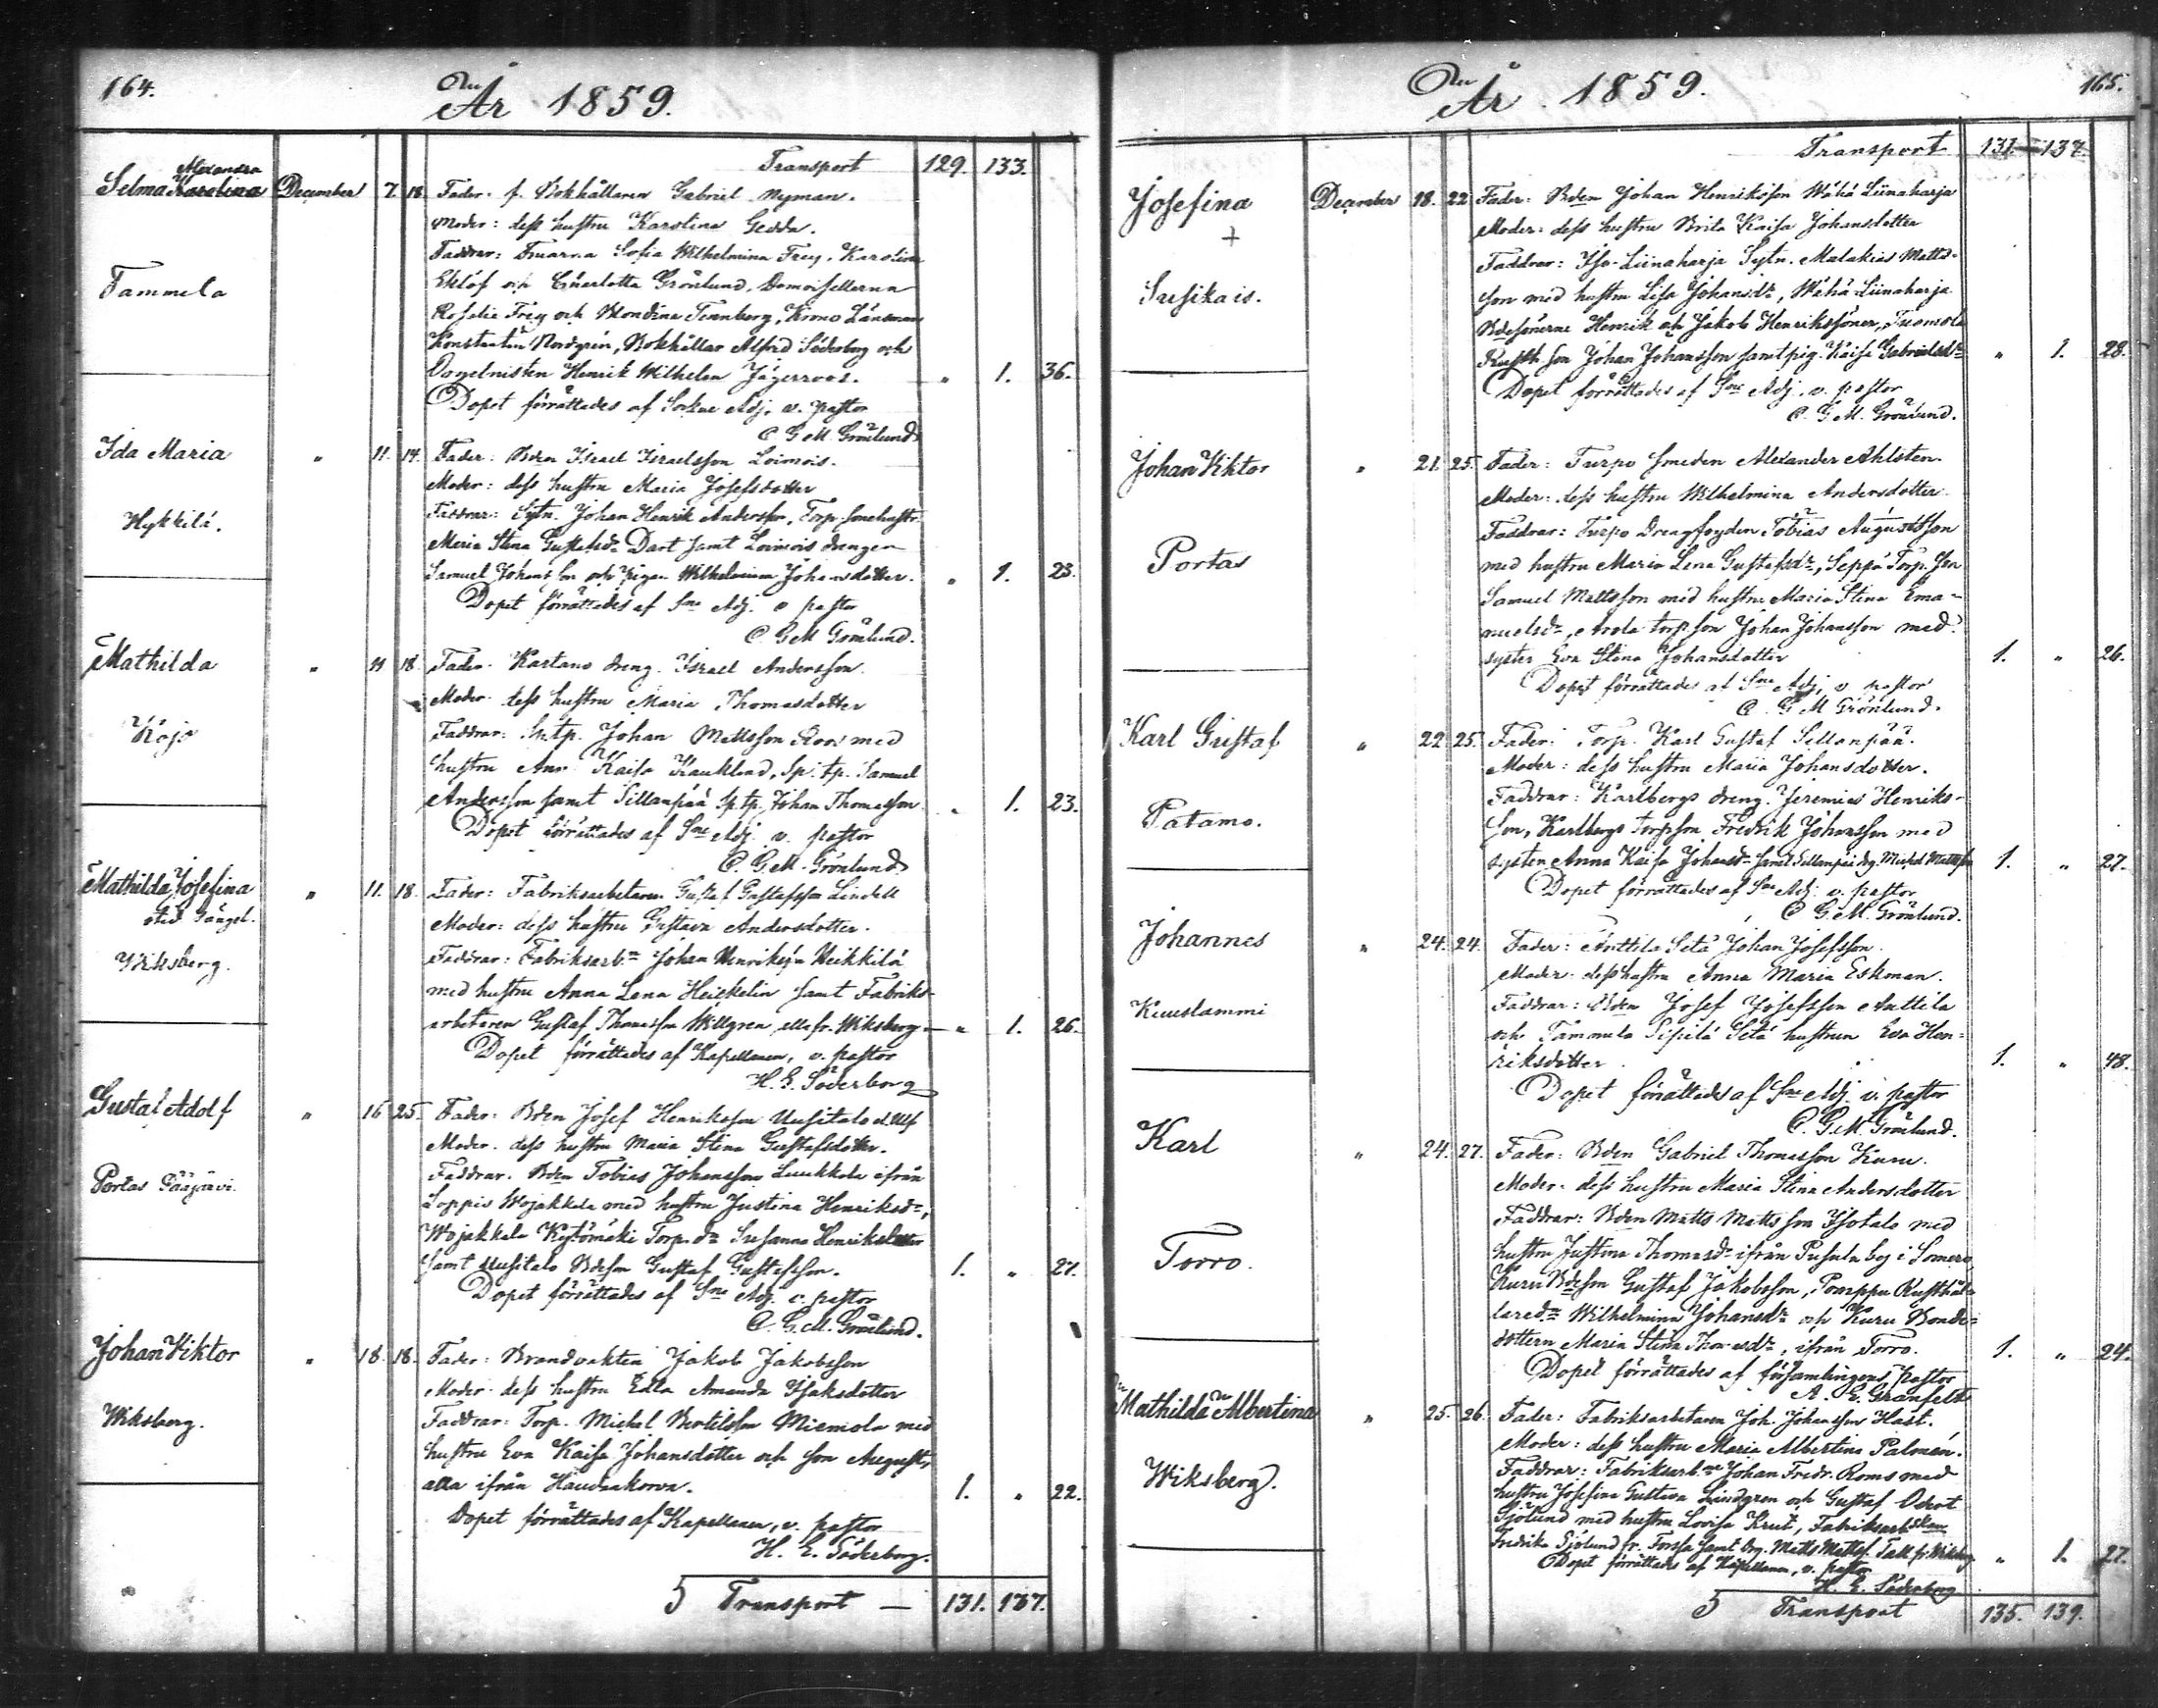 164.
År 1859.
Transport 129. 133.
Alexandra
Selma Karolina December 7. 18. Fader: f. Bokhållaren Gabriel Nyman.
Moder: dess hustru Karolina Gedda.
Faddrar: Fruarna Sofia Wilhelmina Frey, Karolina
Tammela
Eklöf och Charlotta Grönlund, Demoisellerna
Rosalie Frey och Blondina Tennberg, Krono Länsman
Konstantin Nordgrén, Bokhållar Alfred Söderborg och
Henrik Wilhelm Jägerroos. " 1. 36.
Dopet förrättades af Sockne Adj. v. pastor
C. G. M. Grönlund
Ida Maria " 11. 14. Fader: Bden Israel Israelsson Loimois.
Moder: dess hustru Maria Josefsdotter
Hykkilä.
Faddrar: Sytn. Johan Henrik Andersson, Torp. sonehustr.
Maria Stina Dart samt Loimois drengen
Samuel Johansson och pigan Wilhelmina Johansdotter. " 1. 23.
Dopet förrättades af Sne Adj. v pastor
C. G. M Grönlund.
Mathilda " 11 18. Fader: Kartano dreng. Israel Andersson.
Moder: dess hustru Maria Thomasdotter
Kojo
Faddrar: Johan Mattsson Roos med
hustru Anna Kaisa Sp. tp. Samuel
Andersson samt Sillanpää Sp. tp. Johan Thomasson. " 1. 23.
Dopet förrättades af Sne Adj. v. pastor
C. G. M. Grönlund
Mathilda Josefina " 11. 18. Fader: Fabriksarbetaren Gustaf Gustafsson Lindell
Moder: dess hustru Gustava Andersdotter.
Wiksberg.
Faddrar: Fabriksarb:n Johan Henriksson Heikkilä
med hustru Anna Lena Heickelin samt Fabriks-
arbetaren Gustaf Thomasson Willgren, alla fr. Wiksberg. " 1. 26.
Dopet förrättades af Kapellanen, v. pastor
H. E. Söderborg
Gustaf Adolf " 16 25. Fader: Bden Josef Henriksson Uusitalo
Moder: dess hustru Maria Stina Gustafsdotter.
Portas Pääjärvi.
Faddrar: Bden Tobias Johansson Luukkala ifrån
Loppis Wojakkala med hustru Justina Henriksdr,
Wojakkala Kytömäki Torp. dr Susanna Henriksdotter
samt Uusitalo Bdeson Gustaf Gustafsson. 1. " 27.
Dopet förrättades af Sne Adj. v. pastor
C. G. M. Grönlund.
Johan Viktor " 18. 18. Fader: Brandvakten Jakob Jakobsson
Moder: dess hustru Edla Amanda Isaksdotter
Wiksberg.
Faddrar: Torp. Michel Bertilsson Miemola med
hustru Eva Kaisa Johansdotter och son August,
alla ifrån Haudankorva. 1. " 22.
Dopet förrättades af Kapellanen, v. pastor
H. E. Söderborg.
5 Transport — 131. 137.
165.
År 1859.
Transport 131. 137.
Josefina December 18. 22 Fader: Bden Johan Henriksson Wähä Liinaharja
+
Moder: dess hustru Brita Kaisa Johansdotter
Susikais.
Faddrar: Iso-Liinaharja Sytn. Malakias Matts-
son med hustru Lisa Johansdr, Wähä-Liinaharja
Bdesönerne Henrik och Jakob Henrikssöner, Tuomola
Rusth. son Johan Johansson samt pig. Kaisa Gabrielsdr " 1. 28.
Dopet förrättades af Sne Adj. v. pastor
C. G. M. Grönlund.
Johan Viktor " 21. 25. Fader: Turpo smeden Alexander Ahlsten.
Moder: dess hustru Wilhelmina Andersdotter.
Portas
Faddrar: Turpo Drengfogden Tobias Augustsson
med hustru Maria Lena Gustafsdr, Seppä Torp. son
Samuel Mattsson med hustru Maria Stina Ema-
nuelsdr, Arola torp. son Johan Johansson med
syster Eva Stina Johansdotter 1. " 26.
Dopet förrättades af Sne Adj. v. pastor
C. G. M Grönlund.
Karl Gustaf " 22. 25. Fader: Torp. Karl Gustaf Sillanpää.
Moder: dess hustru Maria Johansdotter.
Patamo.
Faddrar: Karlbergs dreng. Jeremias Henriks-
son, Karlbergs torpson Fredrik Johansson med
systen Anna Kaisa Johansdr samt Sillanpää dg. Michel Mattsson 1. " 27.
Dopet förrättades af Sne Adj. v. pastor
C. G. M. Grönlund.
Johannes " 24. 24. Fader: Anttila Setä Johan Josefsson.
Moder: dess hustru Anna Maria Eskman.
Kuuslammi
Faddrar: Bden Josef Josefsson Anttila
och Tammela Sipilä Setä hustrun Eva Hen-
riksdotter. 1. " 48.
Dopet förrättades af Sne Adj. v. pastor
C. G. M. Grönlund.
Karl " 24. 27. Fader: Bden Gabriel Thomasson Kuru.
Moder: dess hustru Maria Stina Andersdotter
Torro.
Faddrar: Bden Matts Mattsson Isotalo med
hustru Justina Thomasdr ifrån Pusula by i Somero
Kuru Bdeson Gustaf Jakobsson, Pomppu Rusthål-
laredr Wilhelmina Johansdr och Kuru Bonde-
dottern Maria Stina Thomasdr, ifrån Torro. 1. " 24.
Dopet förrättades af församlingens pastor
A. E. Granfelt
Mathilda Albertina " 25. 26. Fader: Fabriksarbetaren Joh. Johansson Hast.
Moder: dess hustru Maria Albertina Palmén.
Wiksberg.
Faddrar: Fabriksarb:ne Johan Fredr. Roms med
hustru Josefina Gustava Lindgren och Gustaf
Sjölund med hustru Lovisa Krut, Fabriksarbskan
Fredrika Sjölund fr. Forssa samt Drg. Matts Mattss. Tall fr. Wiksberg " 1. 27.
Dopet förrättades af Kapellanen, v. pastor
H. E. Söderborg
5 Transport 135. 139.